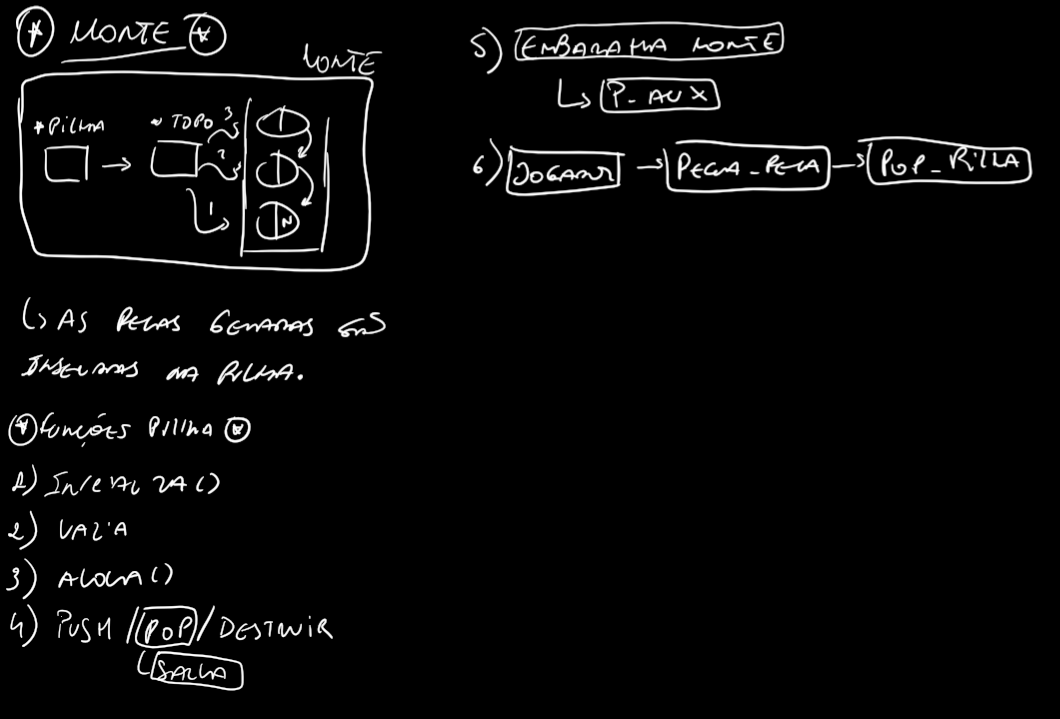 * MONTE *
MONTE
*PILHA
~ TOPO
3
2
1
N
↳ AS PECAS GERADAS SÃO
INSERIDAS NA PILHA.
* FUNÇÕES PILHA *
1) INICIALIZA()
2) VAZIA
3) ALOCA()
4) PUSH / POP / DESTRUIR
↳ SALVA
5) EMBARALHA MONTE
↳ P_AUX
6) JOGADOR → PEGA_PECA → POP_PILHA